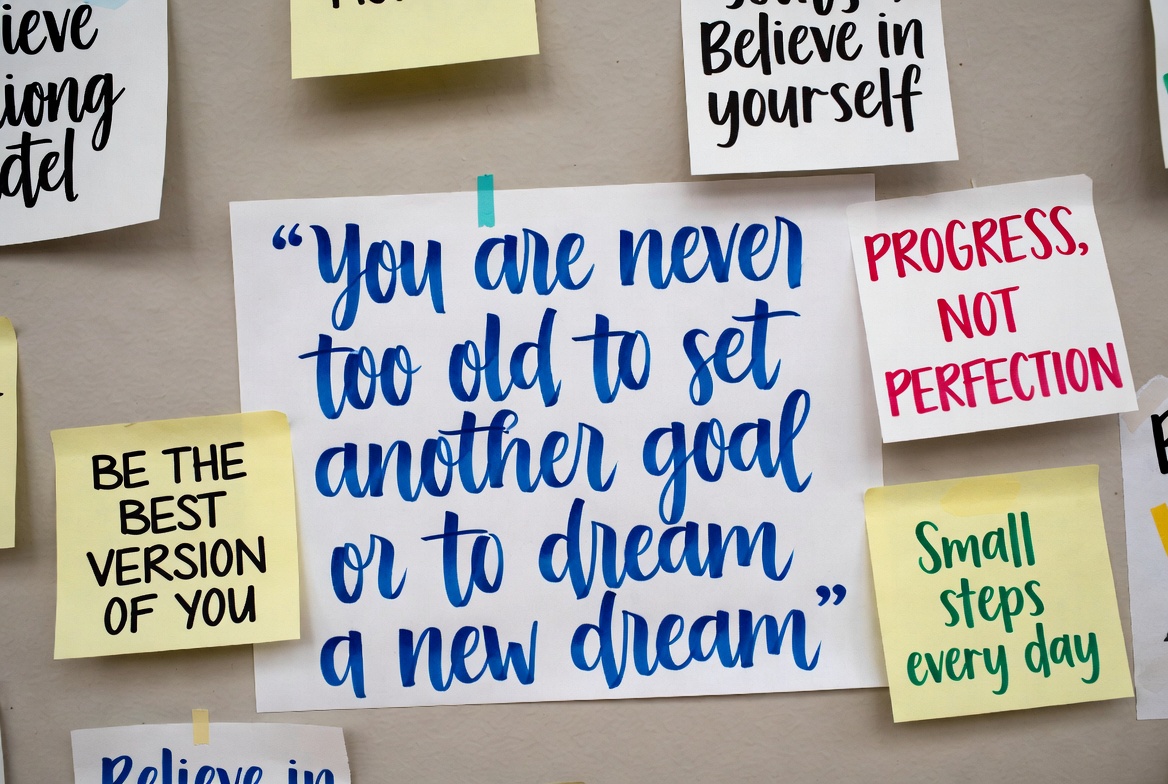 Believe in
yourself
"You are never
too old to set
another goal
or to dream
or to dream
a new dream"
PROGRESS,
NOT
PERFECTION
BE THE
BEST
VERSION
OF YOU
Small
steps
every day
Believe in